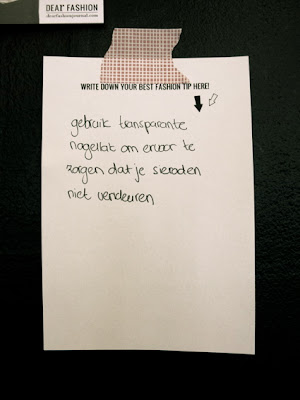 DEAF FASHION
deaffashionjournal.com
WRITE DOWN YOUR BEST FASHION TIP HERE!
gebruik transparante
nagellak om ervoor te
zorgen dat je sieraden
niet verkleuren